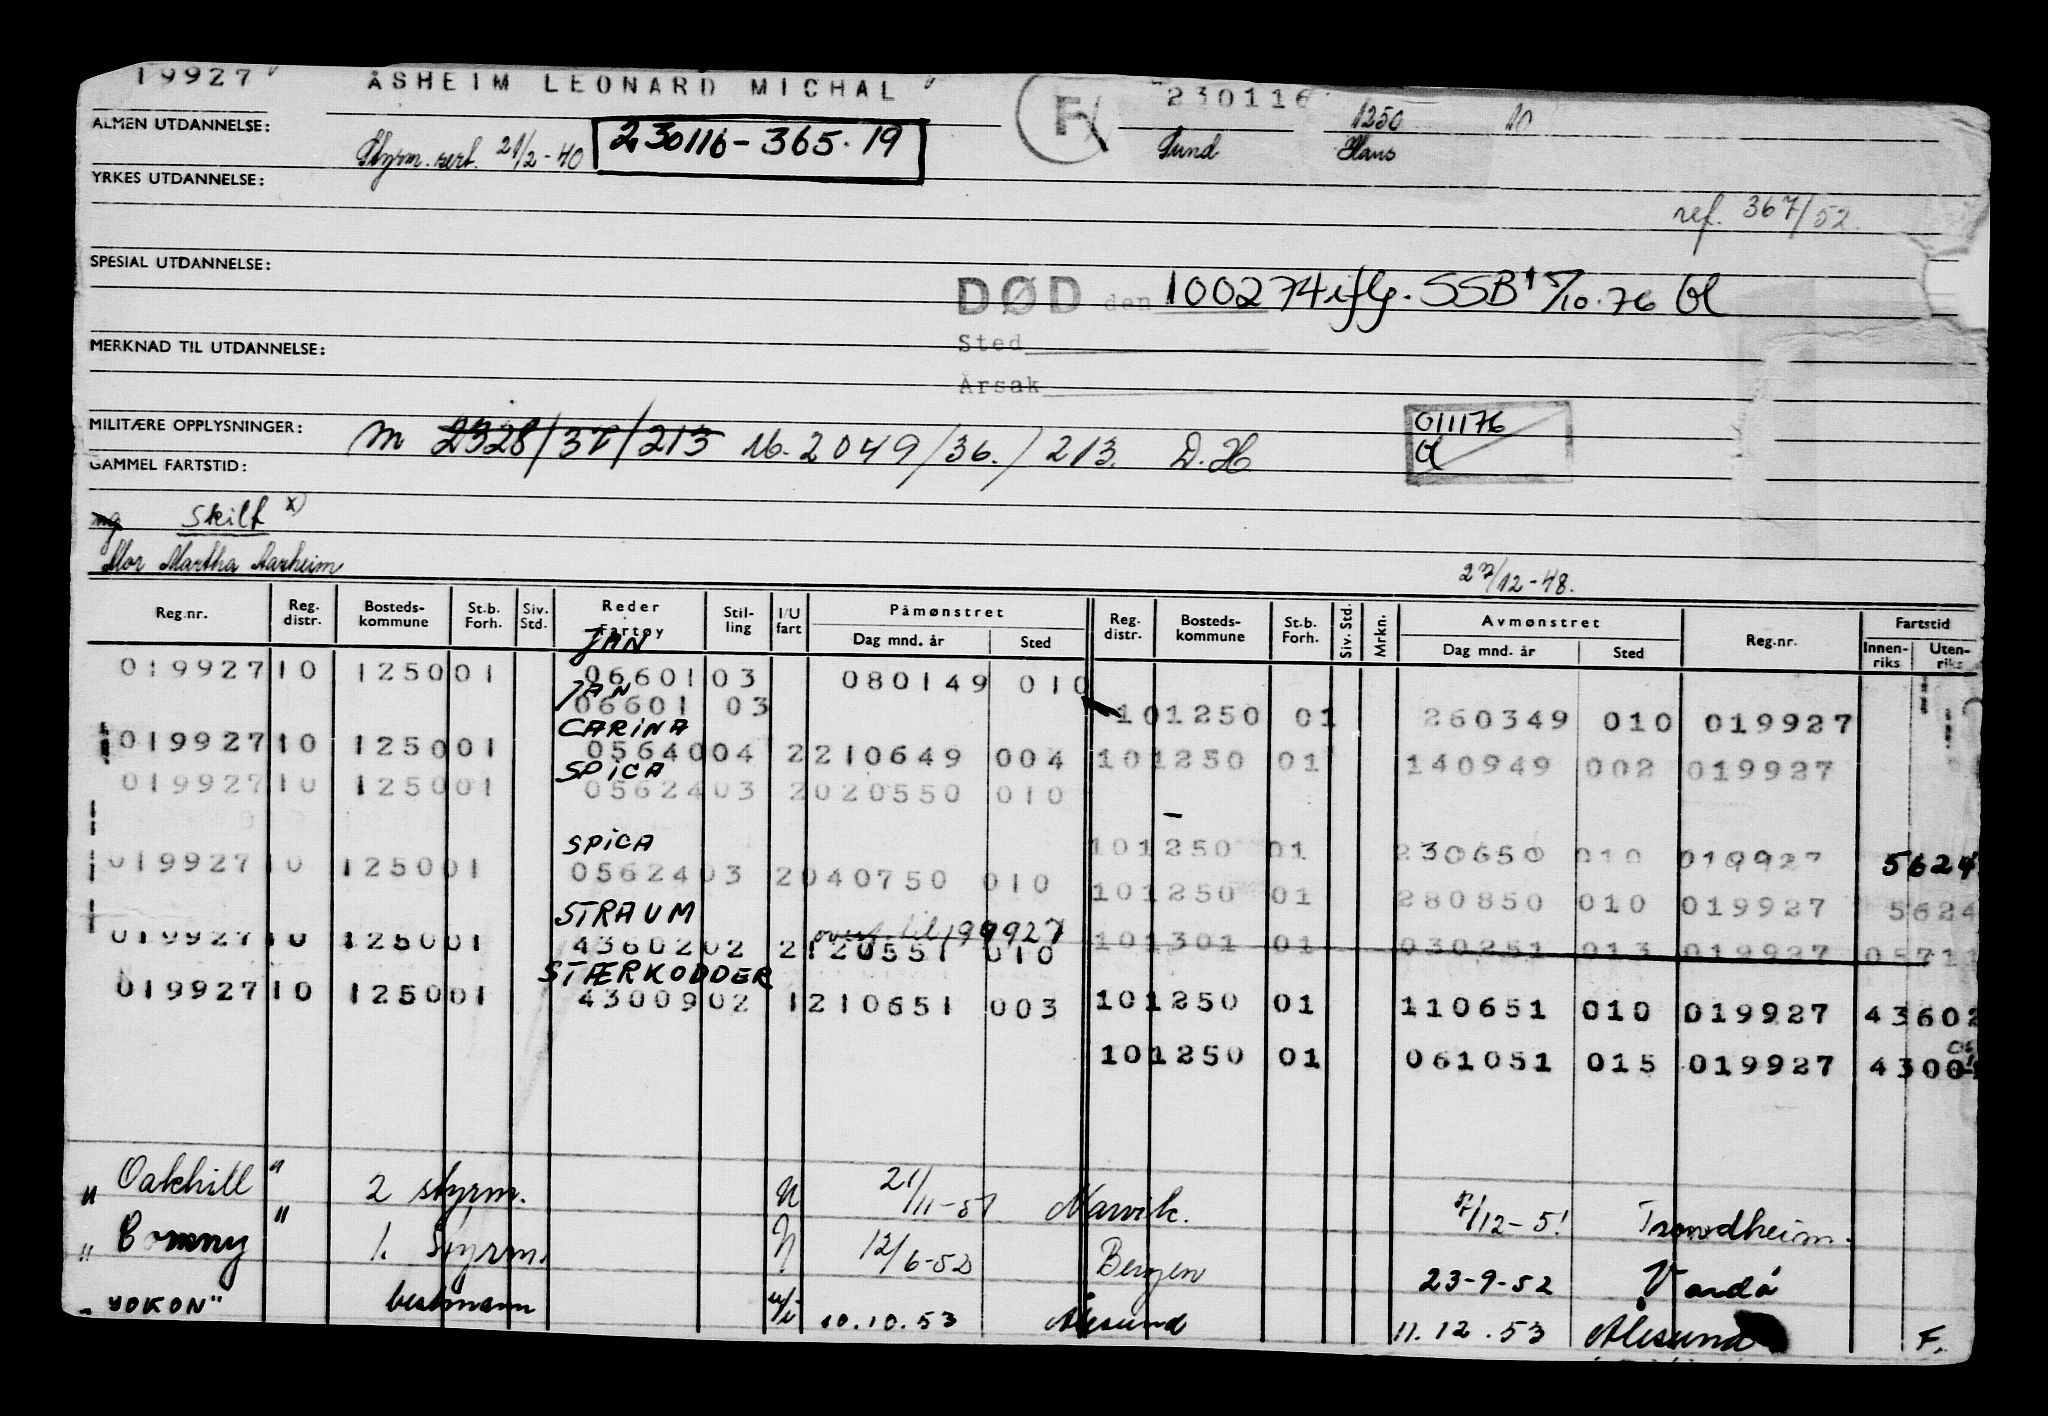 19927 ÅSHEIM LEONARD MICHAL F 230116 1250 10
ALMEN UTDANNELSE: Styrm. sert. 21/2-40 230116-365.19 Sund Haus
YRKES UTDANNELSE:
ref. 367/52.
SPESIAL UTDANNELSE:
DØD den 100274 iflg. SSB 5/10.76
Sted
MERKNAD TIL UTDANNELSE:
Årsak
MILITÆRE OPPLYSNINGER: M 2328/37/213 16. 2049/36./213. D.H 011176
GAMMEL FARTSTID:
Skilt x)
Mor Martha Aarheim
27/12-48.
Reg.nr. Reg. distr. Bosteds-kommune St.b. Forh. Siv. Std. Reder Fartøy Stil-ling I/U fart Påmønstret Dag mnd. år Sted Reg. distr. Bosteds-kommune St.b. Forh. Siv. Std. Mrkn. Avmønstret Dag mnd. år Sted Reg.nr. Fartstid Innen-riks Uten-riks
JAN
019927 10 1250 01 06601 03 080149 010
JAN
06601 03 10 1250 01 260349 010 019927
CARINA
019927 10 1250 01 05640 04 2 210649 004 10 1250 01 140949 002 019927
SPICA
019927 10 1250 01 05624 03 2 020550 010
10 1250 01 230650 010 019927 5624
SPICA
019927 10 1250 01 05624 03 2 040750 010
10 1250 01 280850 010 019927 5624
STRAUM
overf. til 199927
10 1301 01 030251 013 019927 05711
019927 10 1250 01 43602 02 2 120551 010
STÆRKODDER
019927 10 1250 01 43009 02 1 210651 003 10 1250 01 110651 010 019927 43602
10 1250 01 061051 015 019927 4300
" Oakhill " 2 styrm. U 21/11-51 Narvik. 7/12-51 Trondheim.
" Bomny " 1. Styrm. N 12/6-52 Bergen 23-9-52 Vardø
"YOKON" bestmann u/i 10.10.53 Ålesund 11.12.53 Ålesund F.